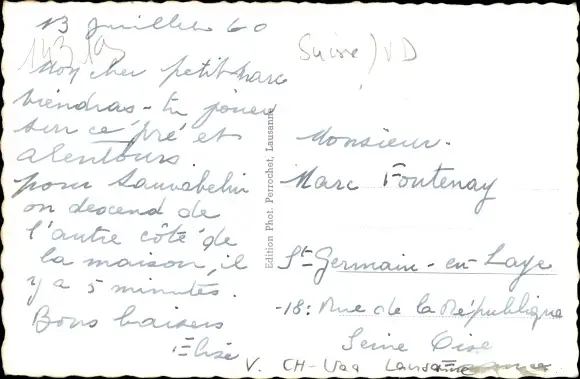 13 Juillet 60
Mon cher petit Marc
viendras-tu jouer
sur ce pré et
alentours
pour Sauvabelin
on descend de
l'autre côté de
la maison, il
y a 5 minutes.
Bons baisers
Élise
Edition Phot. Perrochet, Lausanne
Suisse) VD
Monsieur.
Marc Fontenay
St Germain-en-Laye
-18: Rue de la République
Seine Oise
V. CH-Vaa Lausanne